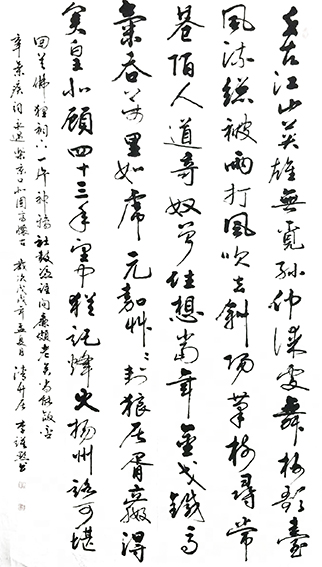 千古江山英雄無覓孫仲謀處舞榭歌臺
風流總被雨打風吹去斜陽草樹尋常
巷陌人道寄奴曾住想當年金戈鐵馬
氣吞萬里如虎元嘉艸艸封狼居胥贏得
倉皇北顧四十三年望中猶記烽火揚州路可堪
回首佛狸祠下一片神鴉社鼓憑誰問廉頗老矣尚能飯否
辛棄疾詞永遇樂京口北固亭懷古 歲次戊戌年五月 李 書